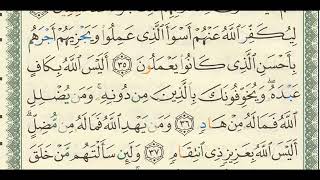 لِيُكَفِّرَ ٱللَّهُ عَنْهُمْ أَسْوَأَ ٱلَّذِى عَمِلُوا۟ وَيَجْزِيَهُمْ أَجْرَهُم
بِأَحْسَنِ ٱلَّذِى كَانُوا۟ يَعْمَلُونَ ٣٥ أَلَيْسَ ٱللَّهُ بِكَافٍ
عَبْدَهُۥ ۖ وَيُخَوِّفُونَكَ بِٱلَّذِينَ مِن دُونِهِۦ ۚ وَمَن يُضْلِلِ
ٱللَّهُ فَمَا لَهُۥ مِنْ هَادٍ ٣٦ وَمَن يَهْدِ ٱللَّهُ فَمَا لَهُۥ مِن مُّضِلٍّ ۗ
أَلَيْسَ ٱللَّهُ بِعَزِيزٍ ذِى ٱنتِقَامٍ ٣٧ وَلَئِن سَأَلْتَهُم مَّنْ خَلَقَ